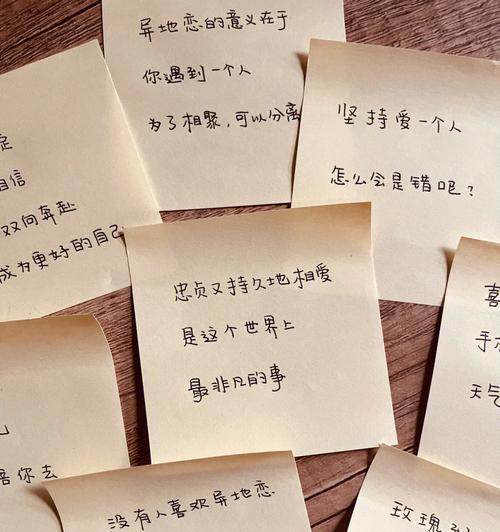 异地恋的意义在于
你遇到一个人
为了相聚，可以分离
坚持爱一个人
怎么会是错呢？
定
双向奔赴
成为更好的自己
忠贞又持久地相爱
是这个世界上
最非凡的事
喜
手
天气
你去
没有人喜欢异地恋
玫瑰